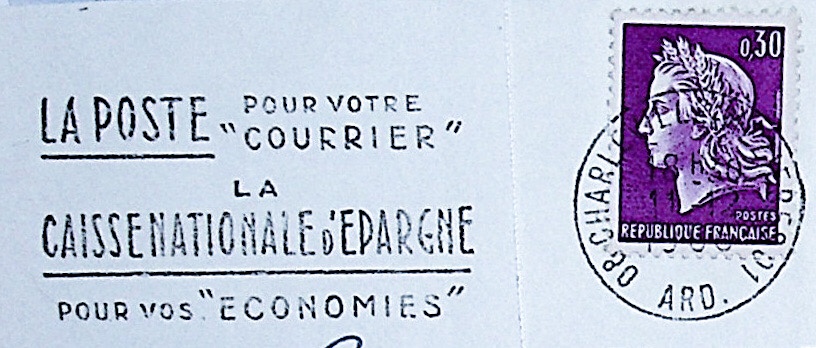 LA POSTE POUR VOTRE
"COURRIER"
LA
CAISSE NATIONALE D'EPARGNE
POUR VOS "ECONOMIES"
0,30
POSTES
REPUBLIQUE FRANÇAISE
08 CHARL
ARD.